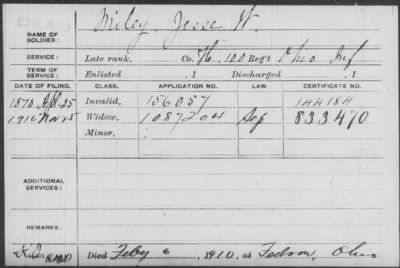 NAME OF SOLDIER: Wiley, Jesse W.
SERVICE: Late rank, Co. H, 100 Reg't Ohio Inf
TERM OF SERVICE: Enlisted , 1 Discharged , 1
DATE OF FILING. CLASS. APPLICATION NO. LAW. CERTIFICATE NO.
1870 Apl. 25 Invalid, 156057 144184
1910 Mar 25 Widow, 1087204 833470
Minor,
ADDITIONAL SERVICES:
REMARKS:
Died Feby 6, 1910, at Ohio